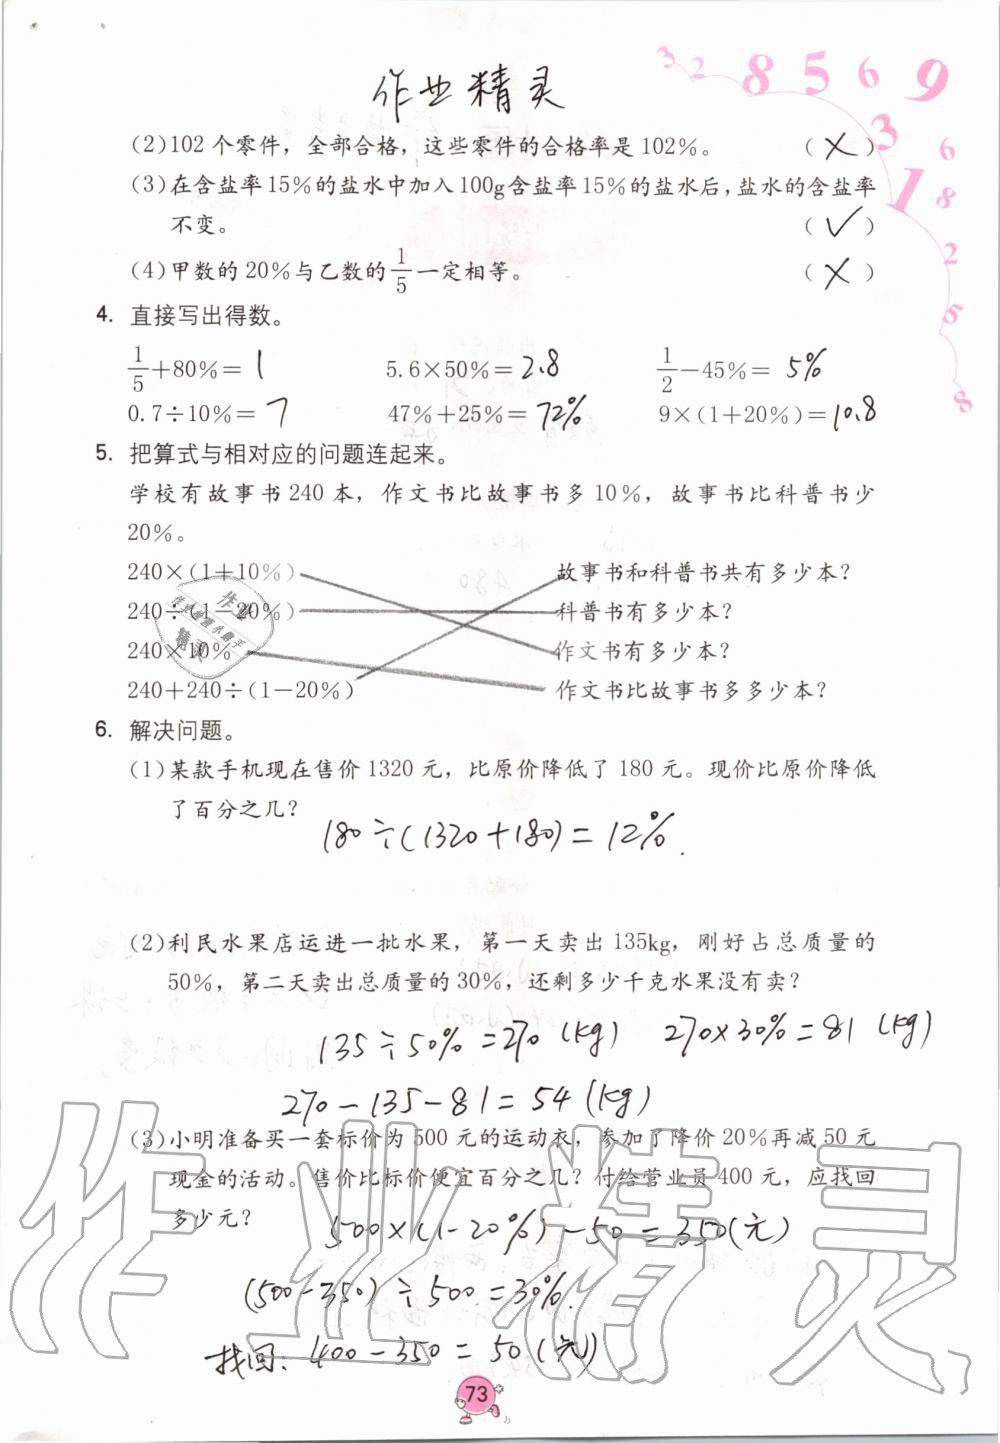 3 2 8 5 6 9
3 1 6 8 2 5 8
作业精灵
(2)102个零件，全部合格，这些零件的合格率是102%。 (×)
(3)在含盐率15%的盐水中加入100g含盐率15%的盐水后,盐水的含盐率
不变。 (√)
(4)甲数的20%与乙数的1/5一定相等。 (×)
4. 直接写出得数。
1/5+80%=1 5.6×50%=2.8 1/2-45%=5%
0.7÷10%=7 47%+25%=72% 9×(1+20%)=10.8
5. 把算式与相对应的问题连起来。
学校有故事书240本，作文书比故事书多10%，故事书比科普书少
20%。
240×(1+10%) 故事书和科普书共有多少本?
240÷(1-20%) 科普书有多少本?
240×10% 作文书有多少本?
240+240÷(1-20%) 作文书比故事书多多少本?
6. 解决问题。
(1)某款手机现在售价1320元，比原价降低了180元。现价比原价降低
了百分之几?
180÷(1320+180)=12%.
(2)利民水果店运进一批水果，第一天卖出135kg，刚好占总质量的
50%，第二天卖出总质量的30%，还剩多少千克水果没有卖?
135÷50%=270(kg) 270×30%=81(kg)
270-135-81=54(kg)
(3)小明准备买一套标价为500元的运动衣，参加了降价20%再减50元
现金的活动。售价比标价便宜百分之几?付给营业员400元，应找回
多少元?
500×(1-20%)-50=350(元)
(500-350)÷500=30%.
找回:400-350=50(元)
作业精灵
73